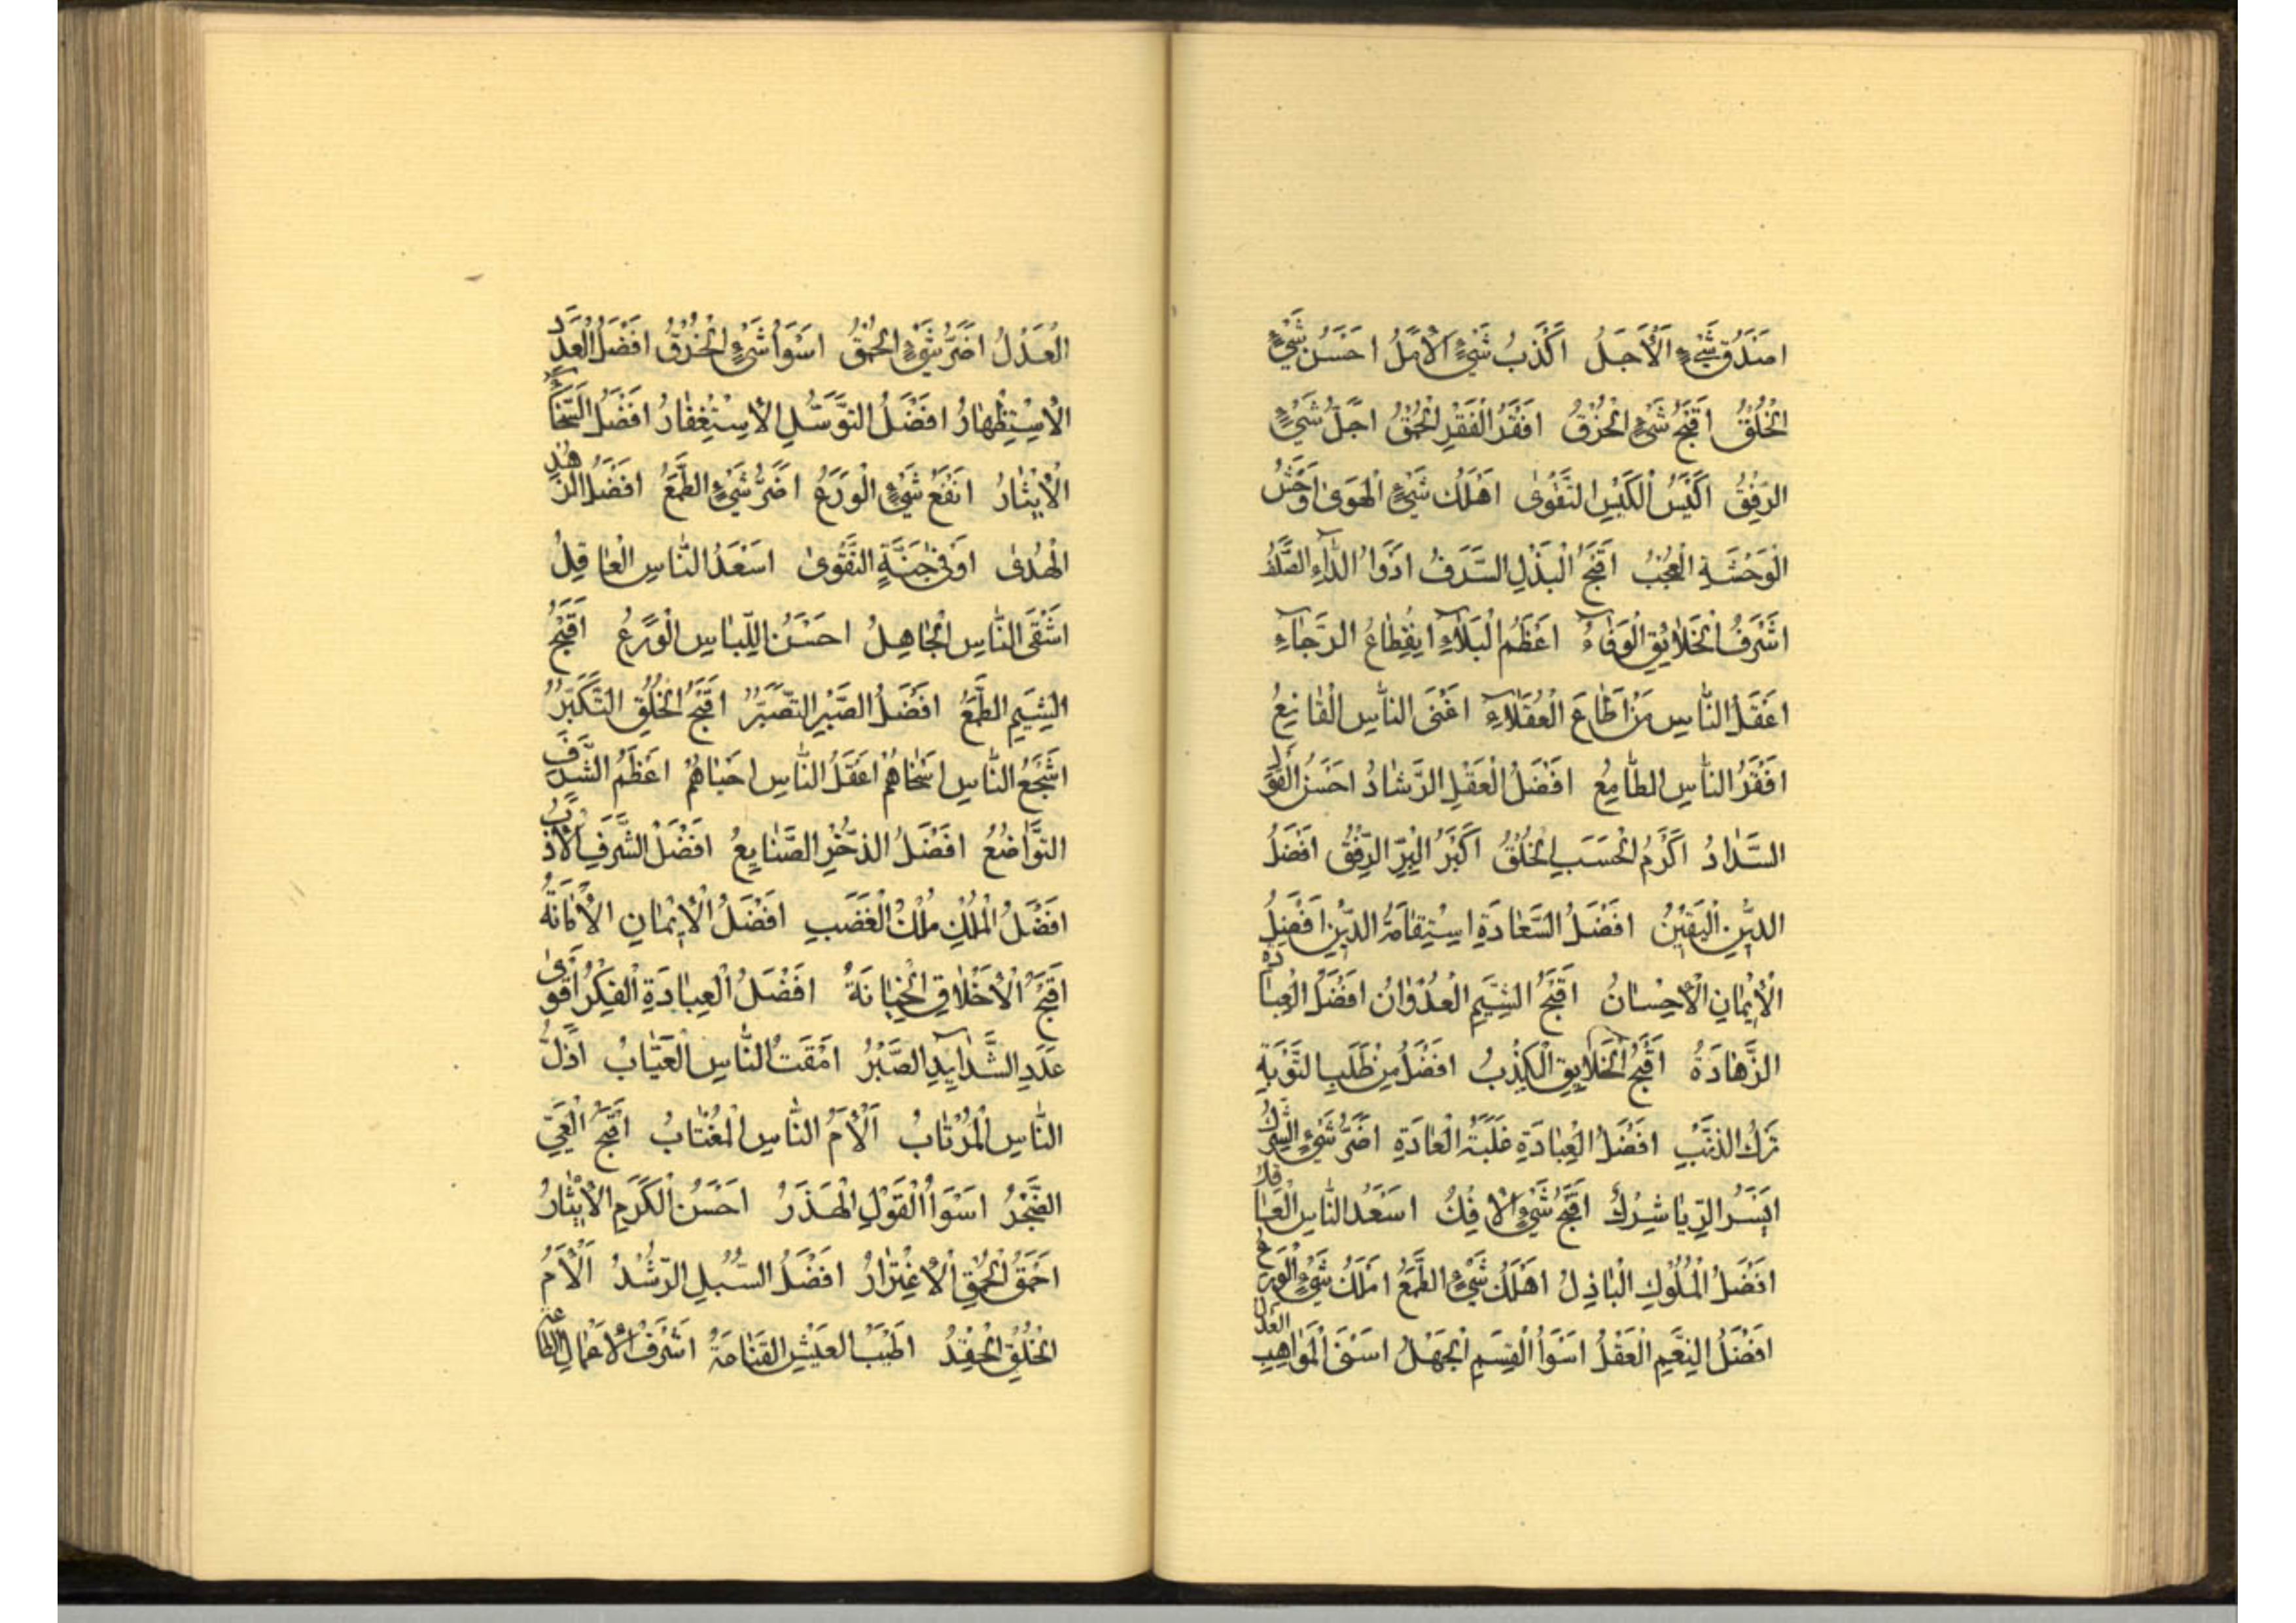 اَصْدَقُ شَيْءٍ الْاَجَلُ اَكْذَبُ شَيْءٍ الْاَمَلُ اَحْسَنُ شَيْءٍ
الْخُلْقُ اَقْبَحُ شَيْءٍ الْخُرْقُ اَفْقَرُ الْفَقْرِ الْحُمْقُ اَجَلُّ شَيْءٍ
الرِّفْقُ اَكْيَسُ الْكَيْسِ التَّقْوٰى اَهْلَكُ شَيْءٍ الْهَوٰى اَوْحَشُ
الْوَحْشَةِ الْعُجْبُ اَقْبَحُ الْبَذْلِ السَّرَفُ اَدْوَاُ الدَّآءِ الصَّلَفُ
اَشْرَفُ الْخَلايِقِ الْوَفآءُ اَعْظَمُ الْبَلآءِ اِنْقِطَاعُ الرَّجآءِ
اَعْقَلُ النَّاسِ مَنْ اَطَاعَ الْعُقَلآءِ اَغْنَى النَّاسِ الْقَانِعُ
اَفْقَرُ النَّاسِ الطَّامِعُ اَفْضَلُ الْعَقْلِ الرَّشَادُ اَحْسَنُ الْقَوْلِ
السَّدَادُ اَكْرَمُ الْحَسَبِ الْخُلْقُ اَكْبَرُ الْبِرِّ الرِّفْقُ اَفْضَلُ
الدِّينِ الْيَقِينُ اَفْضَلُ السَّعَادَةِ اِسْتِقَامَةُ الدِّينِ اَفْضَلُ
الْاِيمَانِ الْاِحْسَانُ اَقْبَحُ الشِّيَمِ الْعُدْوَانُ اَفْضَلُ الْعِبَادَةِ
الزَّهَادَةُ اَقْبَحُ الْخَلآيِقِ الْكِذْبُ اَفْضَلُ مِنْ طَلَبِ التَّوْبَةِ
تَرْكُ الذَّنْبِ اَفْضَلُ الْعِبَادَةِ غَلَبَةُ الْعَادَةِ اَضَرُّ شَيْءٍ الشِّرْكُ
اَيْسَرُ الرِّيَا شِرْكٌ اَقْبَحُ شَيْءٍ الْاِفْكُ اَسْعَدُ النَّاسِ الْعَاقِلُ
اَفْضَلُ الْمُلُوكِ الْبَاذِلُ اَهْلَكُ شَيْءٍ الطَّمَعُ اَمْلَكُ شَيْءٍ الْوَرَعُ
اَفْضَلُ النِّعَمِ الْعَقْلُ اَسْوَأُ الْقِسَمِ الْجَهْلُ اَسْنَى الْمَوَاهِبِ الْعَدْلُ
الْعَدْلُ اَضَرُّ شَيْءٍ الْحُمْقُ اَسْوَأُ شَيْءٍ الْخُرْقُ اَفْضَلُ الْعُدَدِ
الْاِسْتِظْهَارُ اَفْضَلُ التَّوَسُّلِ الْاِسْتِغْفَارُ اَفْضَلُ السَّخَآءِ
الْاِيثَارُ اَنْفَعُ شَيْءٍ الْوَرَعُ اَضَرُّ شَيْءٍ الطَّمَعُ اَفْضَلُ الزُّهْدِ
الْهُدٰى اَوْقٰى جُنَّةٍ التَّقْوٰى اَسْعَدُ النَّاسِ الْعَاقِلُ
اَشْقَى النَّاسِ الْجَاهِلُ اَحْسَنُ اللِّبَاسِ الْوَرَعُ اَقْبَحُ
الشِّيَمِ الطَّمَعُ اَفْضَلُ الصَّبْرِ التَّصَبُّرُ اَقْبَحُ الْخُلُقِ التَّكَبُّرُ
اَشْجَعُ النَّاسِ اَسْخَاهُمْ اَعْقَلُ النَّاسِ اَحْيَاهُمْ اَعْظَمُ الشَّرَفِ
التَّوَاضُعُ اَفْضَلُ الذُّخْرِ الصَّنَايِعُ اَفْضَلُ الشَّرَفِ الْاَدَبُ
اَفْضَلُ الْمُلْكِ مُلْكُ الْغَضَبِ اَفْضَلُ الْاِيمَانِ الْاَمَانَةُ
اَقْبَحُ الْاَخْلَاقِ الْخِيَانَةُ اَفْضَلُ الْعِبَادَةِ الْفِكْرُ اَقْوٰى
عُدَدِ الشَّدَآيِدِ الصَّبْرُ اَمْقَتُ النَّاسِ الْعَيَّابُ اَذَلُّ
النَّاسِ الْمُرْتَابُ اَلْاَمُ النَّاسِ الْمُغْتَابُ اَقْبَحُ الْعَيِّ
الضَّجَرُ اَسْوَأُ الْقَوْلِ الْهَذَرُ اَحْسَنُ الْكَرَمِ الْاِيثَارُ
اَحْمَقُ الْحُمْقِ الْاِغْتِرَارُ اَفْضَلُ السُّبُلِ الرُّشْدُ اَلْاَمُ
الْخُلُقِ الْحِقْدُ اَطْيَبُ الْعَيْشِ الْقَنَاعَةُ اَشْرَفُ الْاَعْمَالِ الطَّاعَةُ